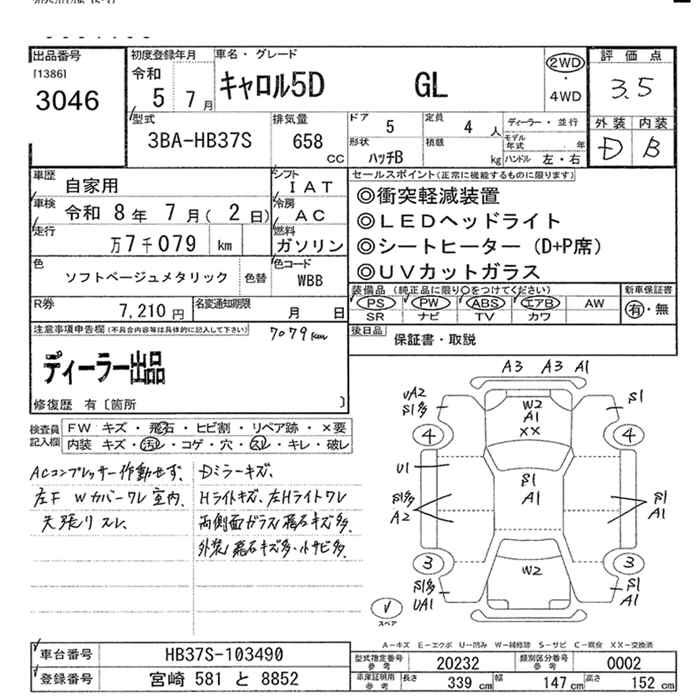 出品番号
[1386]
3046
初度登録年月
令和
5 7月
車名・グレード
キャロル5D GL
2WD
・
4WD
評価点
3.5
外装 内装
D B
型式
3BA-HB37S
排気量
658
CC
ドア
5
定員
4 人
形状
ハッチB
積載
kg
ディーラー・並行
モデル年式 年
ハンドル 左・右
車歴
自家用
シフト
IAT
車検
令和 8年 7月( 2日)
冷房
AC
走行
万7千079 km
燃料
ガソリン
色
ソフトベージュメタリック
色替
色コード
WBB
R券
7,210円
名変通知期限
月 日
セールスポイント(正常に機能するものに限ります)
◎衝突軽減装置
◎LEDヘッドライト
◎シートヒーター(D+P席)
◎UVカットガラス
装備品(純正品に限り○をつけてください)
PS PW ABS エアB AW
SR ナビ TV カワ
新車保証書
有・無
後日品
保証書・取説
注意事項申告欄(不具合内容等は具体的に記入して下さい)
7079km
ディーラー出品
修復歴 有〔箇所 〕
検査員
記入欄
FW キズ・飛石・ヒビ割・リペア跡・×要
内装 キズ・汚レ・コゲ・穴・スレ・キレ・破レ
ACコンプレッサー作動せず、
左F Wカバーワレ 室内、
天張りスレ、
Dミラーキズ、
Hライトキズ、左Hライトワレ
両側面ガラス飛石キズ多、
外装飛石キズ多、小サビ多、
A3 A3 A1
UA2
S1多
W2
A1
XX
S1
4
4
U1
S1多
A2
S1
A1
S1
A1
3
3
W2
S1多
UA1
S1
A1
スペア
A-キズ E-エクボ U-凹み W-補修跡 S-サビ C-腐食 XX-交換済
車台番号
HB37S-103490
登録番号
宮崎 581 と 8852
型式指定番号
参考
20232
類別区分番号
参考
0002
車庫証明用
参考
長さ 339 cm
幅 147 cm
高さ 152 cm